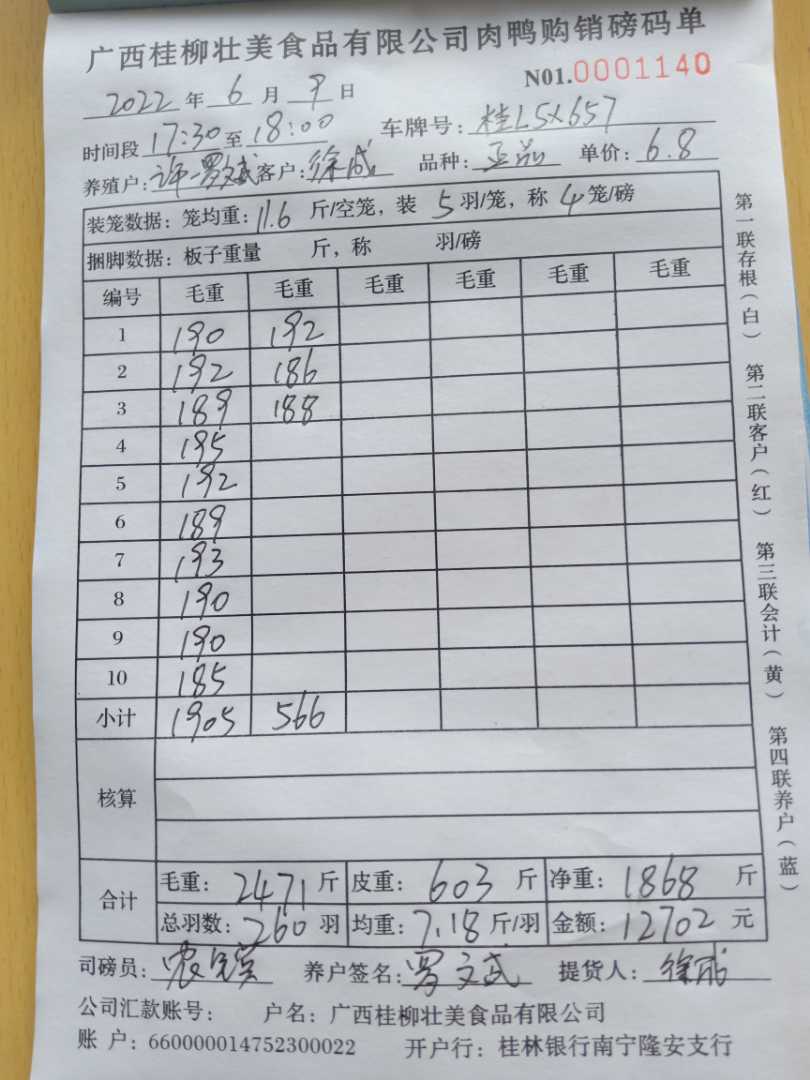 广西桂柳壮美食品有限公司肉鸭购销磅码单
N01.0001140
2022年6月9日
时间段17:30至18:00 车牌号:桂L5X657
养殖户:许-罗文武 客户:徐成 品种:正品 单价:6.8
装笼数据:笼均重:11.6斤/空笼,装5羽/笼,称4笼/磅
捆脚数据:板子重量 斤,称 羽/磅
编号 毛重 毛重 毛重 毛重 毛重 毛重
1 190 192
2 192 186
3 189 188
4 195
5 192
6 189
7 193
8 190
9 190
10 185
小计 1905 566
核算
合计 毛重:2471斤 皮重:603斤 净重:1868斤
总羽数:260羽 均重:7.18斤/羽 金额:12702元
司磅员: 养户签名:罗文武 提货人:徐成
公司汇款账号: 户名:广西桂柳壮美食品有限公司
账 户:660000014752300022 开户行:桂林银行南宁隆安支行
第一联存根(白) 第二联客户(红) 第三联会计(黄) 第四联养户(蓝)